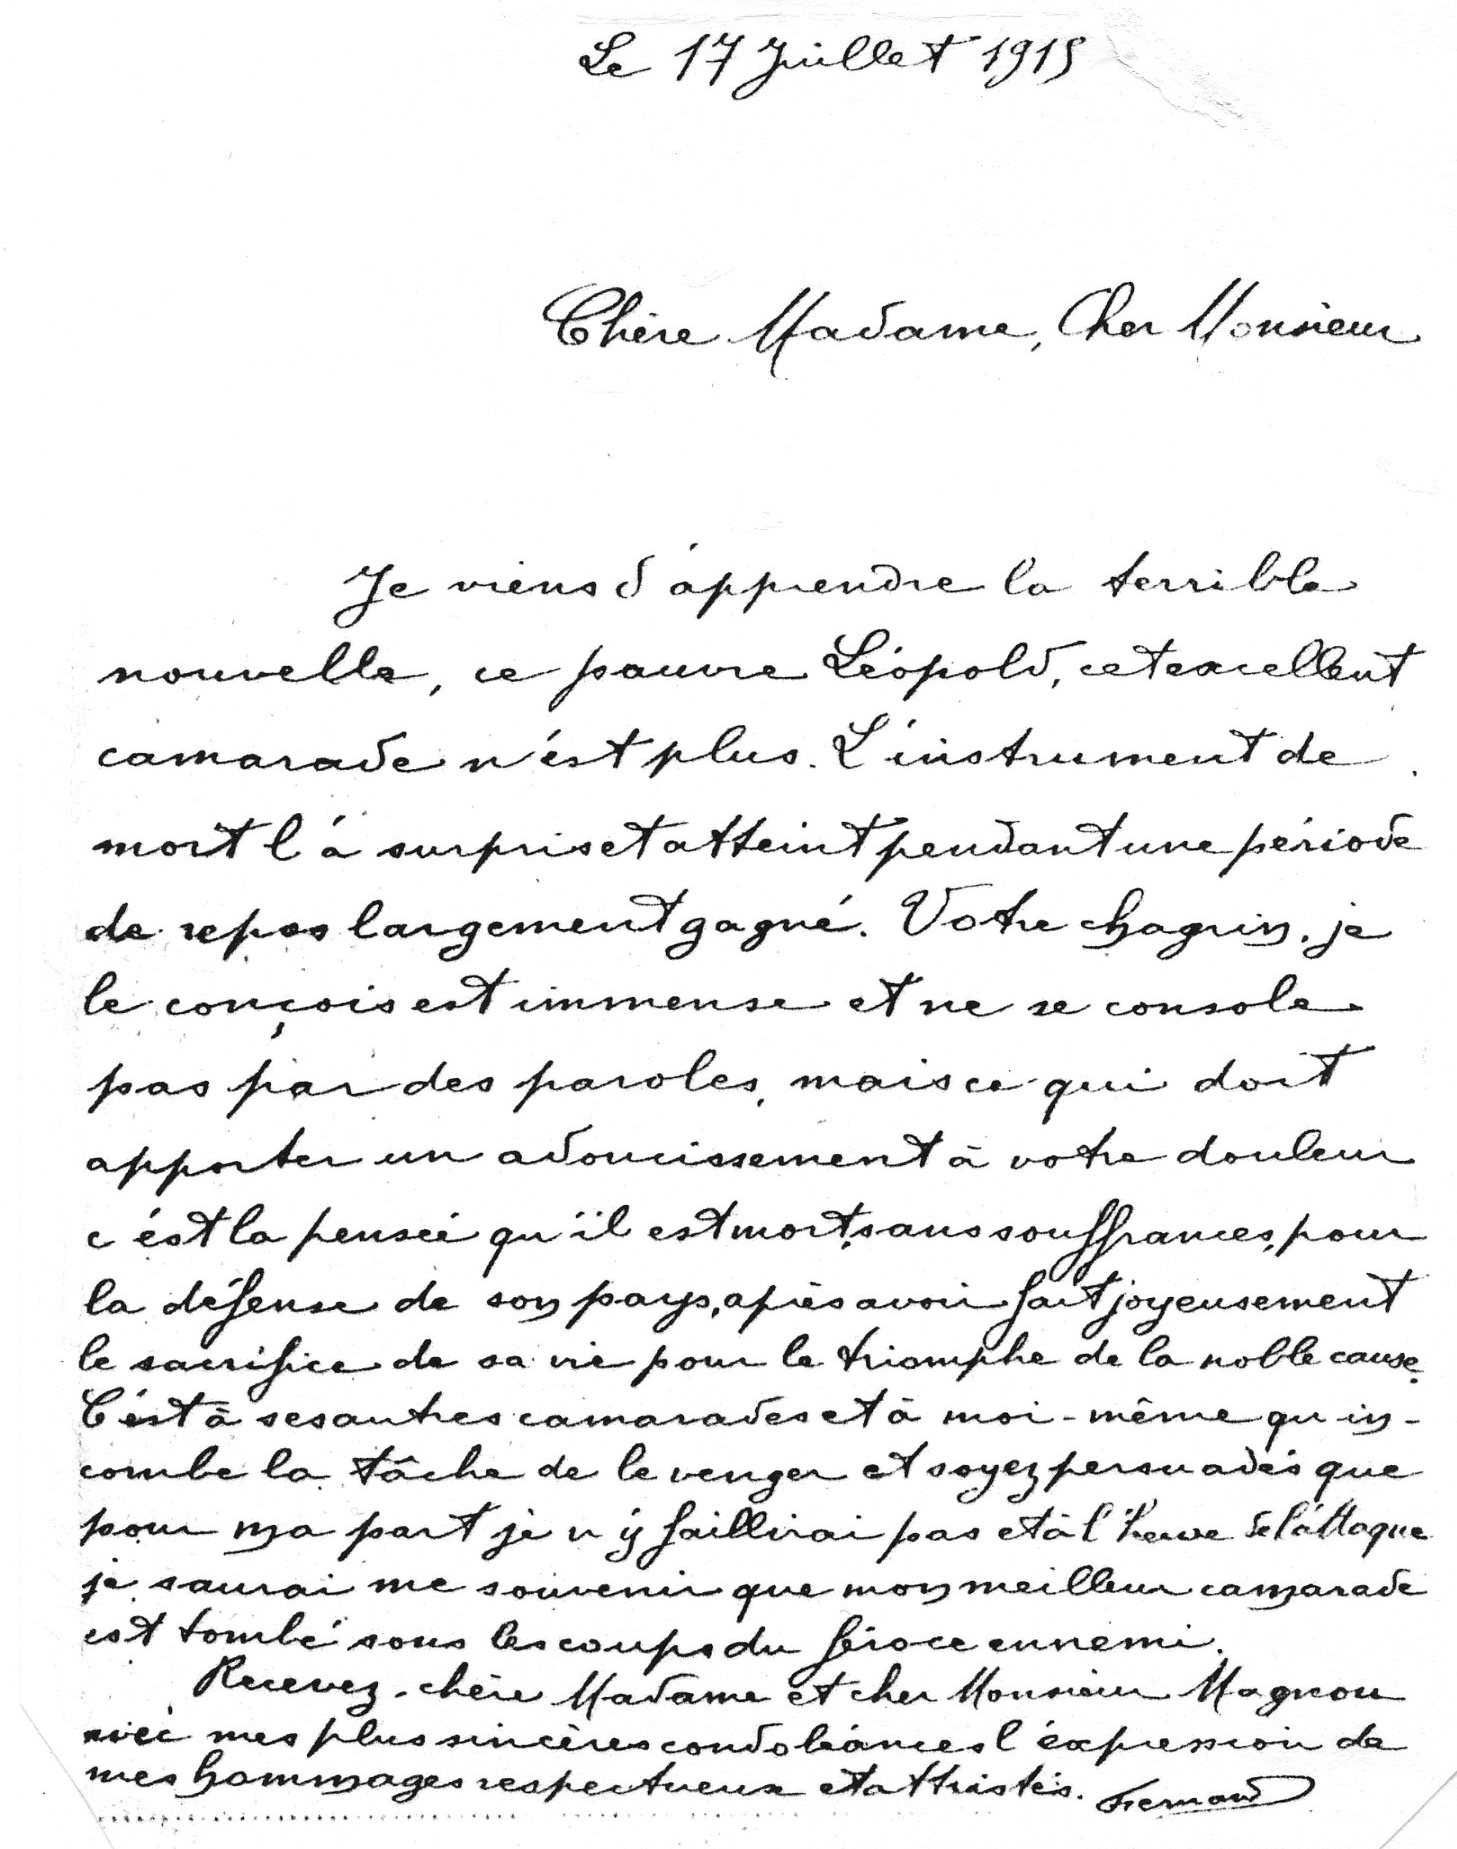 Le 17 Juillet 1915
Chère Madame, Cher Monsieur
Je viens d'apprendre la terrible
nouvelle, ce pauvre Léopold, cet excellent
camarade n'est plus. L'instrument de
mort l'a surpris et atteint pendant une période
de repos largement gagné. Votre chagrin, je
le conçois est immense et ne se console
pas par des paroles, mais ce qui doit
apporter un adoucissement à votre douleur
c'est la pensée qu'il est mort, sans souffrances, pour
la défense de son pays, après avoir fait joyeusement
le sacrifice de sa vie pour le triomphe de la noble cause.
C'est à ses autres camarades et à moi-même qu'in-
combe la tâche de le venger et soyez persuadés que
pour ma part je n'y faillirai pas et à l'heure de l'attaque
je saurai me souvenir que mon meilleur camarade
est tombé sous les coups du féroce ennemi.
Recevez, chère Madame et cher Monsieur Magnou
avec mes plus sincères condoléances l'expression de
mes hommages respectueux et attristés. Fernand